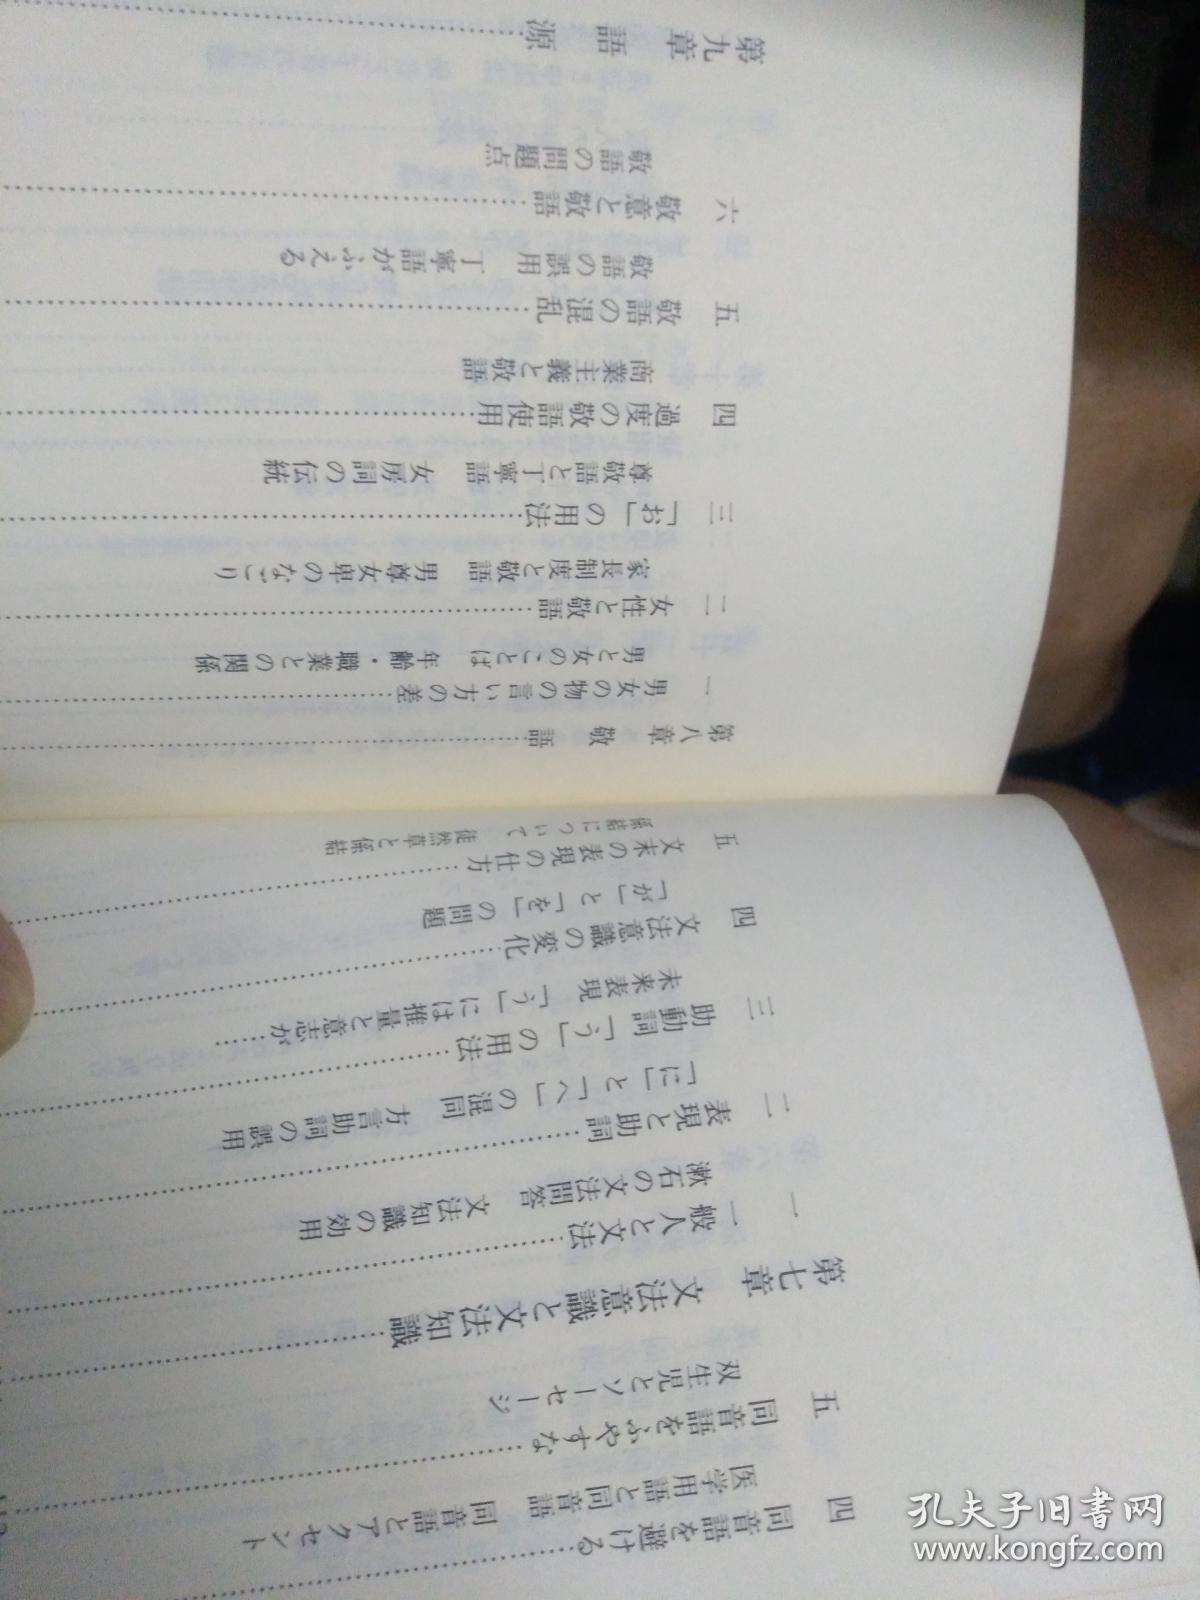 四 同音語を避ける……………
医学用語と同音語 同音語とアクセント
五 同音語をふやすな……………
双生児とソーセージ
第七章 文法意識と文法知識……………
一 一般人と文法……………
漱石の文法問答 文法知識の効用
二 表現と助詞……………
「に」と「へ」の混同 方言助詞の誤用
三 助動詞「う」の用法……………
未来表現 「う」には推量と意志が……
四 文法意識の変化……………
「が」と「を」の問題
五 文末の表現の仕方……………
係結について 徒然草と係結
第八章 敬語……………
一 男女の物の言い方の差……………
男と女のことば 年齢・職業との関係
二 女性と敬語……………
家長制度と敬語 男尊女卑のなごり
三 「お」の用法……………
尊敬語と丁寧語 女房詞の伝統
四 過度の敬語使用……………
商業主義と敬語
五 敬語の混乱……………
敬語の誤用 丁寧語がふえる
六 敬意と敬語……………
敬語の問題点
第九章 語源……………
孔夫子旧书网
www.kongfz.com